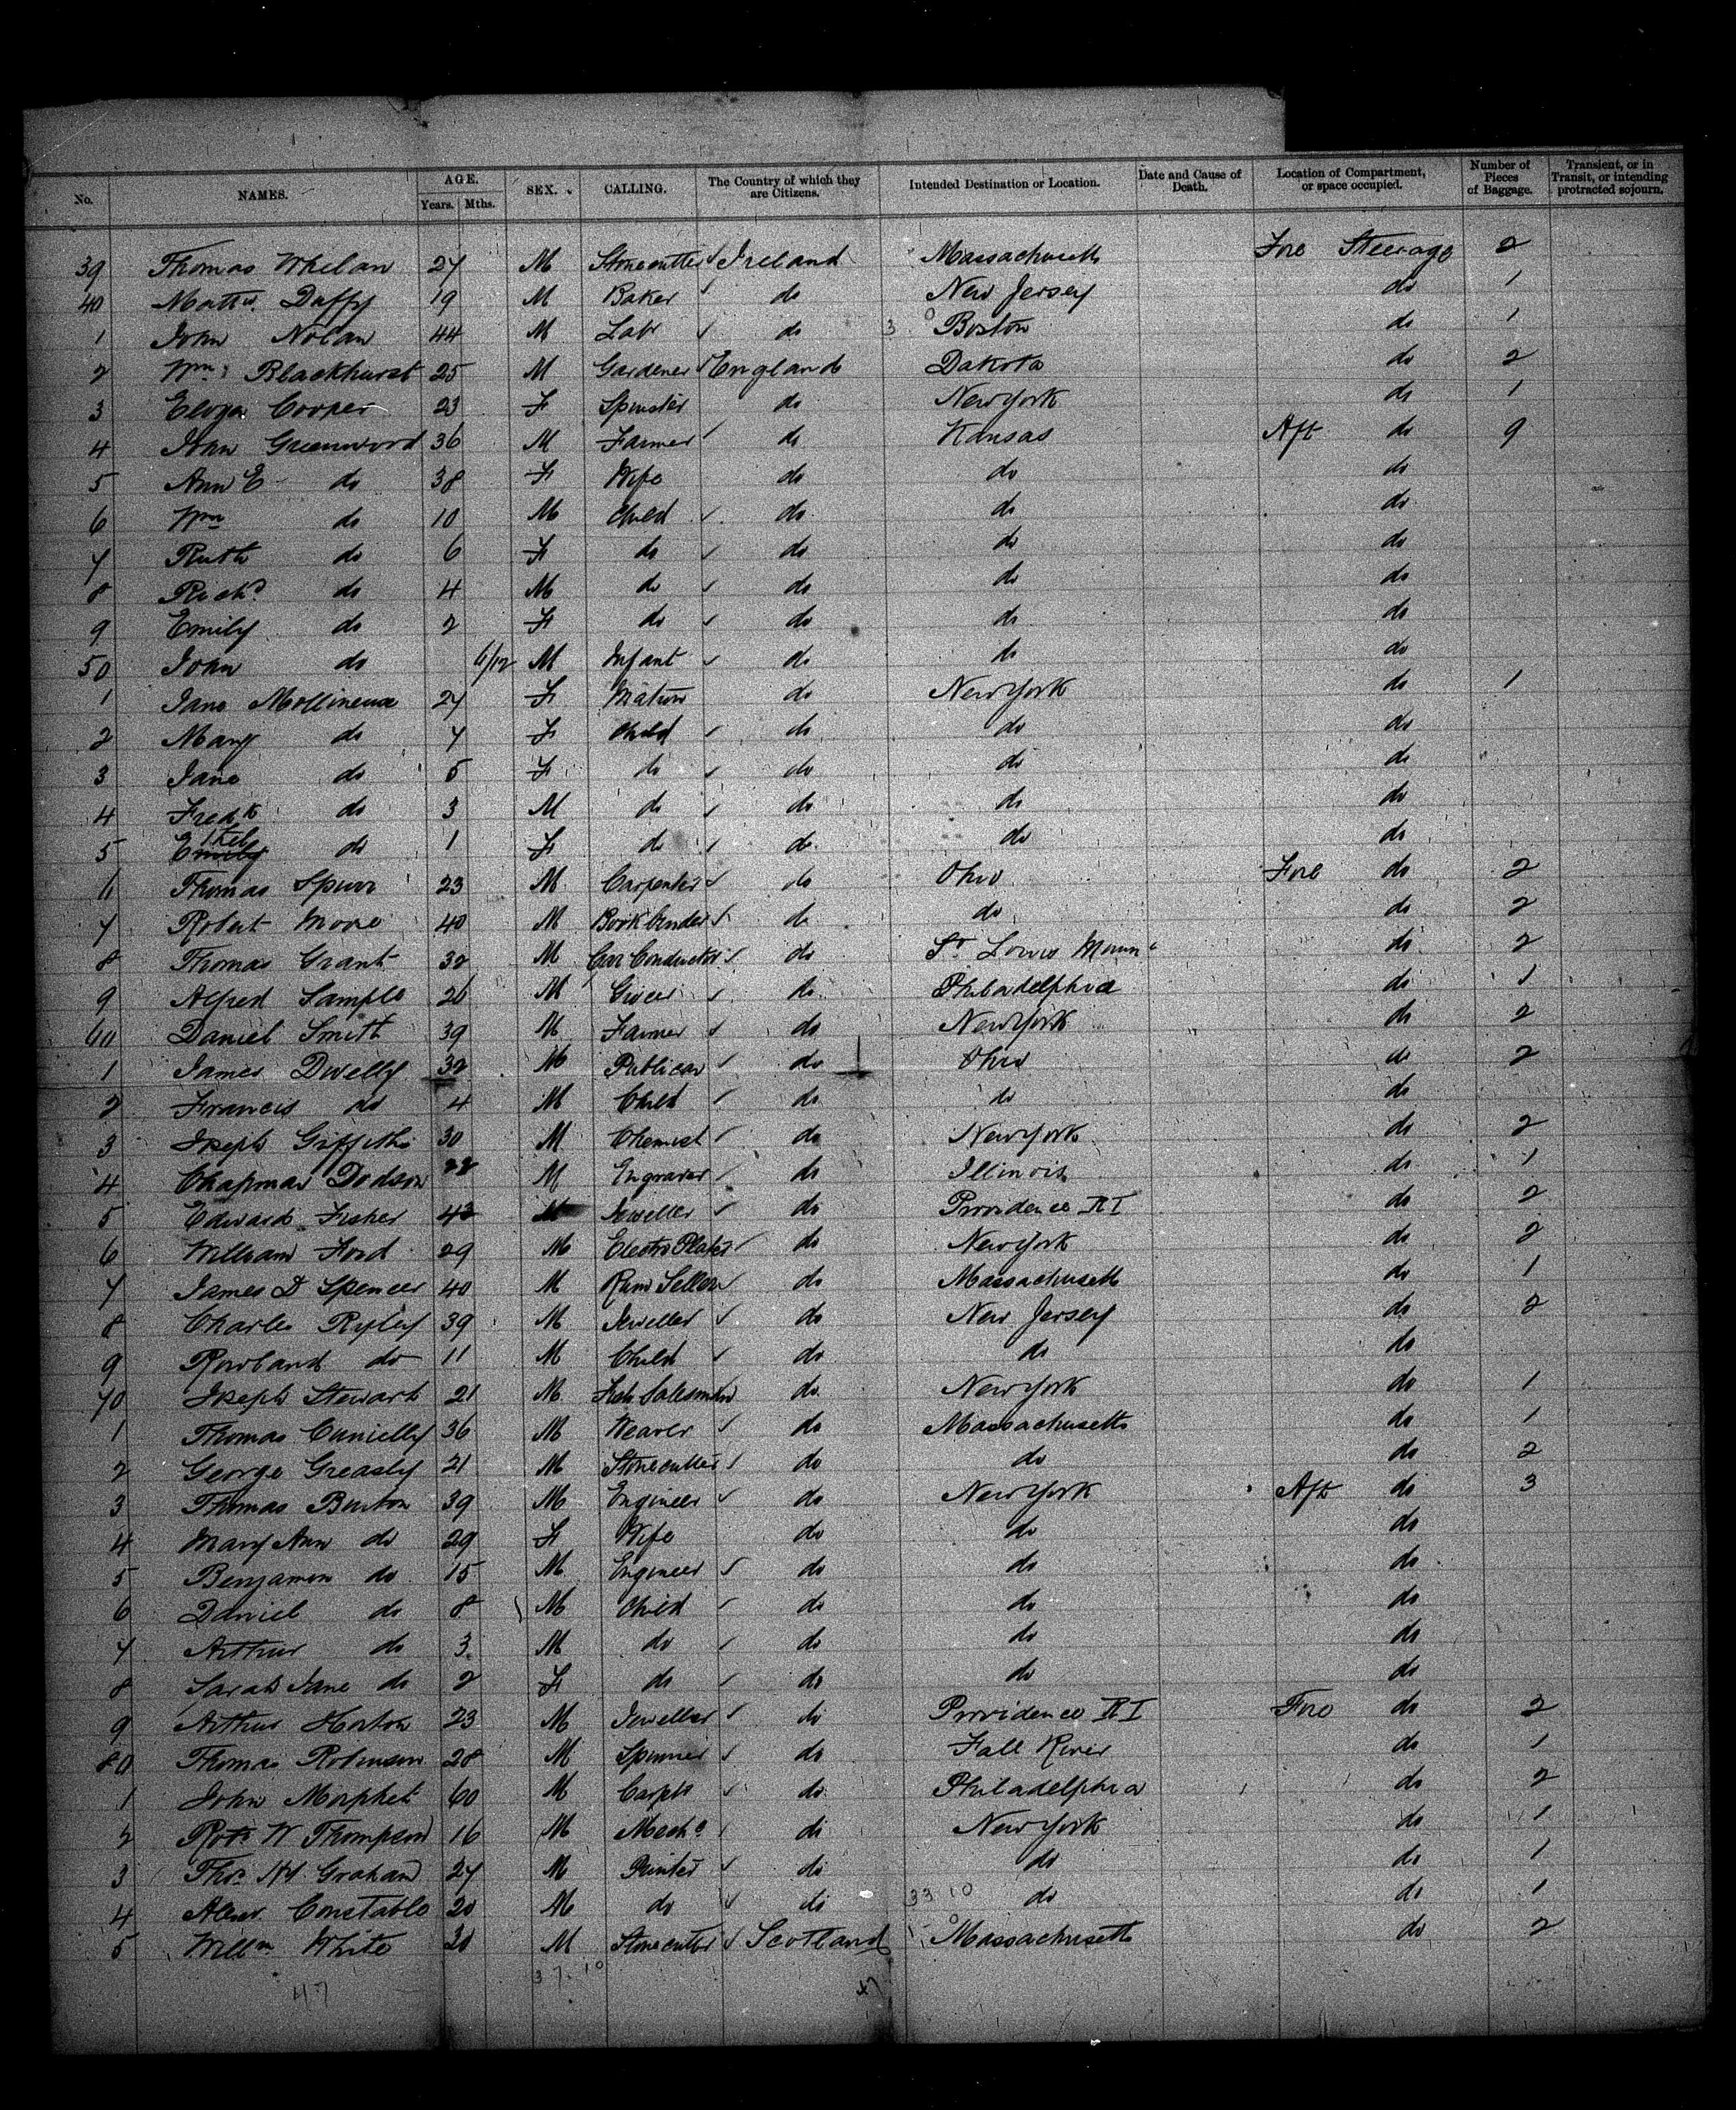 No. NAMES. AGE. Years. Mths. SEX. CALLING. The Country of which they are Citizens. Intended Destination or Location. Date and Cause of Death. Location of Compartment, or space occupied. Number of Pieces of Baggage. Transient, or in Transit, or intending protracted sojourn.
39 Thomas Whelan 27 M Stonecutter Ireland Massachusetts Fore Steerage 2
40 Mattw. Duffy 19 M Baker do New Jersey do 1
1 John Nolan 44 M Labr do Boston do 1
2 Wm. Blackhurst 25 M Gardener England Dakota do 2
3 Eliza Cooper 23 F Spinster do New York do 1
4 John Greenwood 36 M Farmer do Kansas Aft do 9
5 Ann E do 38 F Wife do do do
6 Wm do 10 M Child do do do
7 Ruth do 6 F do do do do
8 Richd do 4 M do do do do
9 Emily do 2 F do do do do
50 John do 6/12 M Infant do do do
1 Jane Mollineux 27 F Matron do New York do 1
2 Mary do 7 F Child do do do
3 Jane do 5 F do do do do
4 Fredk do 3 M do do do do
5 Ethel do 1 F do do do do
6 Thomas Spurr 23 M Carpenter do Ohio Fore do 2
7 Robert Moore 40 M Bookbinder do do do 2
8 Thomas Grant 32 M Car Conductor do St. Louis do 2
9 Alfred Sample 26 M Grocer do Philadelphia do 1
60 Daniel Smith 39 M Farmer do New York do 2
1 James Dwelly 32 M Publican do Ohio do 2
2 Francis do 4 M Child do do do
3 Joseph Griffiths 30 M Chemist do New York do 2
4 Chapman Dodson 22 M Engraver do Illinois do 1
5 Edward Fisher 43 M Jeweller do Providence RI do 2
6 William Ford 29 M Electro Plater do New York do 2
7 James D Spencer 40 M Rum Seller do Massachusetts do 1
8 Charles Ryley 39 M Jeweller do New Jersey do 2
9 Rowland do 11 M Child do do do
70 Joseph Stewart 21 M Fish Salesman do New York do 1
1 Thomas 36 M Weaver do Massachusetts do 1
2 George Greasly 21 M Stonecutter do do do 2
3 Thomas Benton 39 M Engineer do New York Aft do 3
4 Mary Ann do 29 F Wife do do do
5 Benjamin do 15 M Engineer do do do
6 Daniel do 8 M Child do do do
7 Arthur do 3 M do do do do
8 Sarah Jane do 2 F do do do do
9 Arthur Horton 23 M Jeweller do Providence RI Fore do 2
80 Thomas Robinson 28 M Spinner do Fall River do 1
1 John Morphet 60 M Carptr do Philadelphia do 2
2 Robt W Thompson 16 M Mechc do New York do 1
3 Thos Hy. Graham 27 M Printer do do do 1
4 Alexr. Constable 20 M do do do do 1
5 Willm White 30 M Stonecutter Scotland Massachusetts do 2
47 37.10